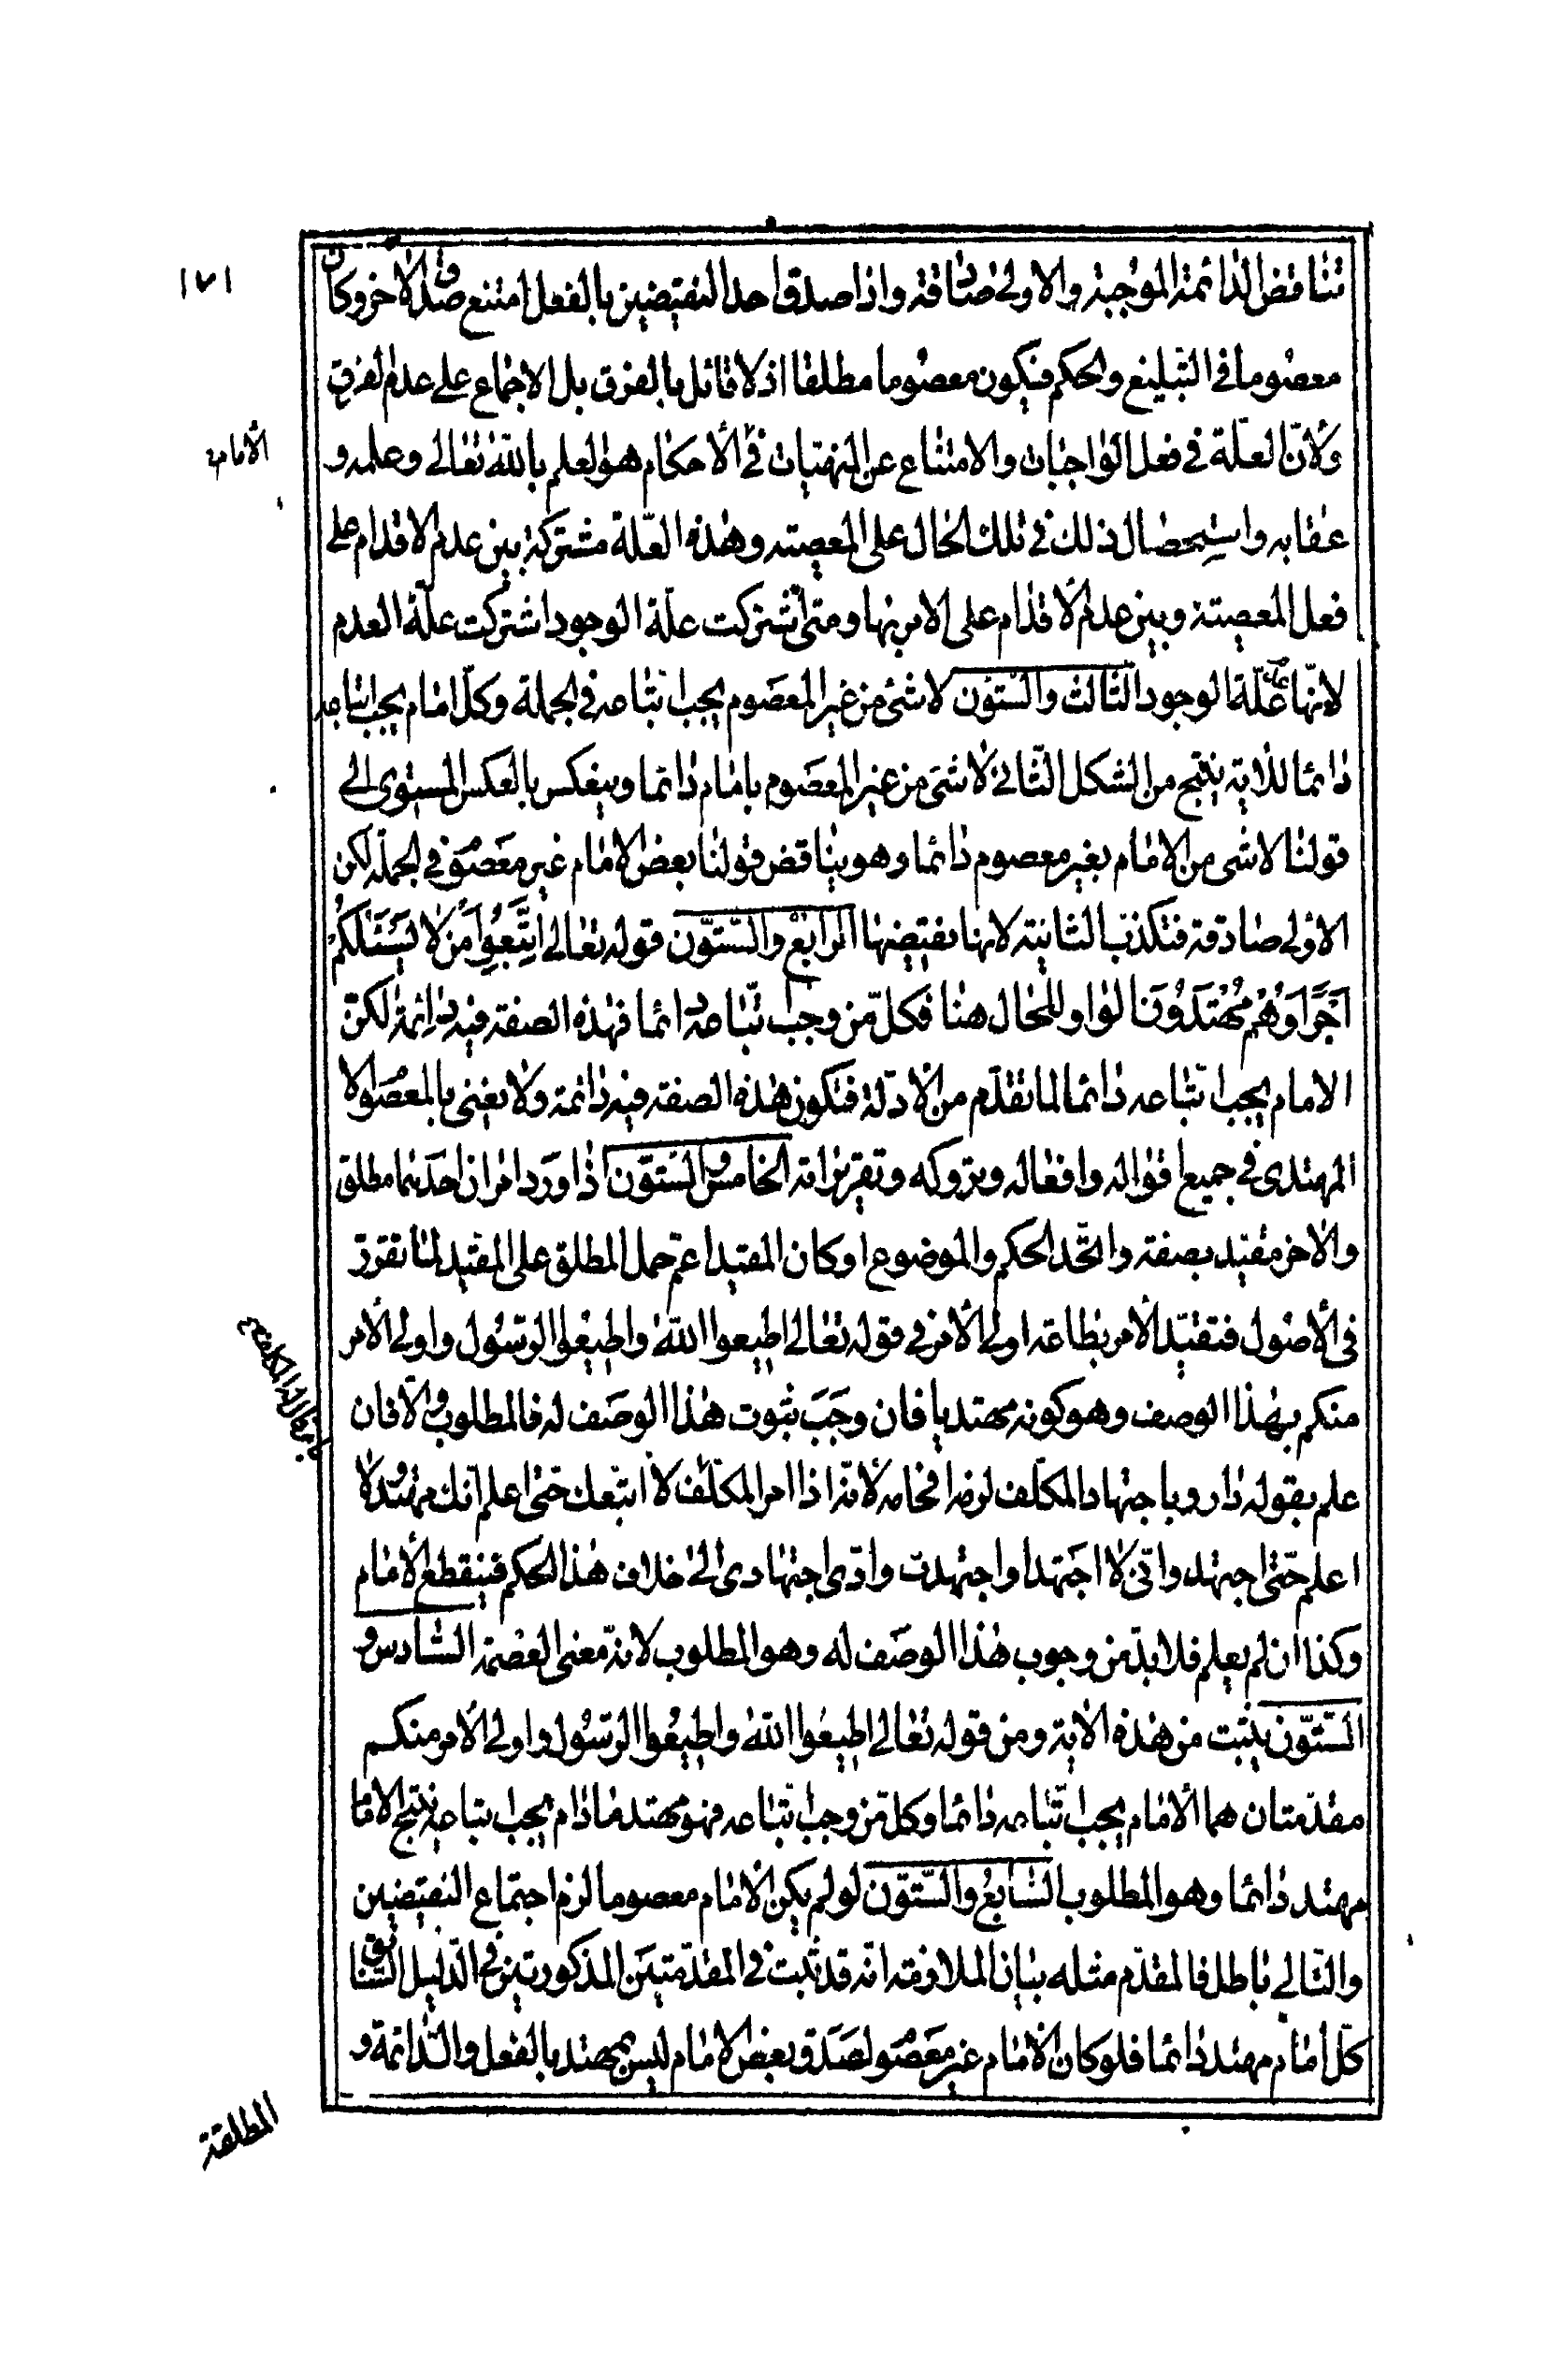 ١٧١
تناقض الدائمة الموجبة والاولى صادقة واذا صدق احد النقيضين بالفعل امتنع صدق الاخر وكان
معصوما فى التبليغ والحكم فيكون معصوما مطلقا اذ لا قائل بالفرق بل الاجماع على عدم الفرق
ولانّ العلّة فى فعل الواجبات والامتناع عن المنهيّات فى الاحكام هو العلم باللّه تعالى وعلمه و
عقابه واستحضال ذلك فى تلك الحال على المعصيته وهذه العلّة مشتركة بين عدم الاقدام على
فعل المعصيته وبين عدم الاقدام على الامر بها ومتى اشتركت علّة الوجود اشتركت علّة العدم
لانّها علّة الوجود الثالث والستّون لا شئ من غير المعصوم يجب اتّباعه فى الجملة وكلّ امام يجب اتباعه
دائما للاية ينتج من الشكل الثانى لا شئ من غير المعصوم بامام دائما وينعكس بالعكس المستوى الى
قولنا لا شى من الامام بغير معصوم دائما وهو يناقض قولنا بعض الامام غير معصوم فى الجملة لكن
الاولى صادقة فتكذب الثانيته لانها نقيضها الرابع والستّون قوله تعالى اتّبعوا من لا يسئلكم
اجرا وهم مهتدون الواو للحال هنا فكلّ من وجب اتّباعه دائما فهذه الصفة فيه دائمة لكن
الامام يجب اتّباعه دائما لما تقدّم من الادلّة فتكون هذه الصفة فيه دائمة ولا نعنى بالمعصوم الا
المهتدى فى جميع اقواله وافعاله وتروكه وتقريراته الخامس والستّون اذا ورد امران احدهما مطلق
والاخر مقيّد بصفة واتّحد الحكم والموضوع او كان المقيد اعم حمل المطلق على المقيد لما تقرّر
فى الاصول فتقيّد الامر بطاعة اولى الامر فى قوله تعالى اطيعوا اللّه واطيعوا الرسول واولى الامر
منكم بهذا الوصف وهو كونه مهتديا فان وجب ثبوت هذا الوصف له فالمطلوب والّا فان
علم بقوله دار وباجتهاد المكلّف لزم افحامه لانّه اذا امر المكلّف لا اتّبعك حتى اعلم انّك مهتد ولا
اعلم حتّى اجتهد وانّى لا اجتهد او اجتهدت وادّى اجتهادى الى خلاف هذا الحكم فينقطع الامام
وكذا ان لم يعلم فلا بدّ من وجوب هذا الوصف له وهو المطلوب لانه معنى العصمة السادس و
الستّون يثبت من هذه الاية ومن قوله تعالى اطيعوا اللّه واطيعوا الرسول واولى الامر منكم
مقدّمتان هما الامام يجب اتّباعه دائما وكلّ من وجب اتّباعه فهو مهتد ما دام يجب اتباعه ينتج الاما
مهتد دائما وهو المطلوب السابع والستّون لو لم يكن الامام معصوما لزم اجتماع النقيضين
والتالى باطل فالمقدّم مثله بيان الملازمة انه قد ثبت فى المقدّمتين المذكورتين فى الدّليل السّابق
كلّ امام مهتد دائما فلو كان الامام غير معصوم لصدق بعض الامام ليس بمهتد بالفعل والدّائمة و
المطلقة